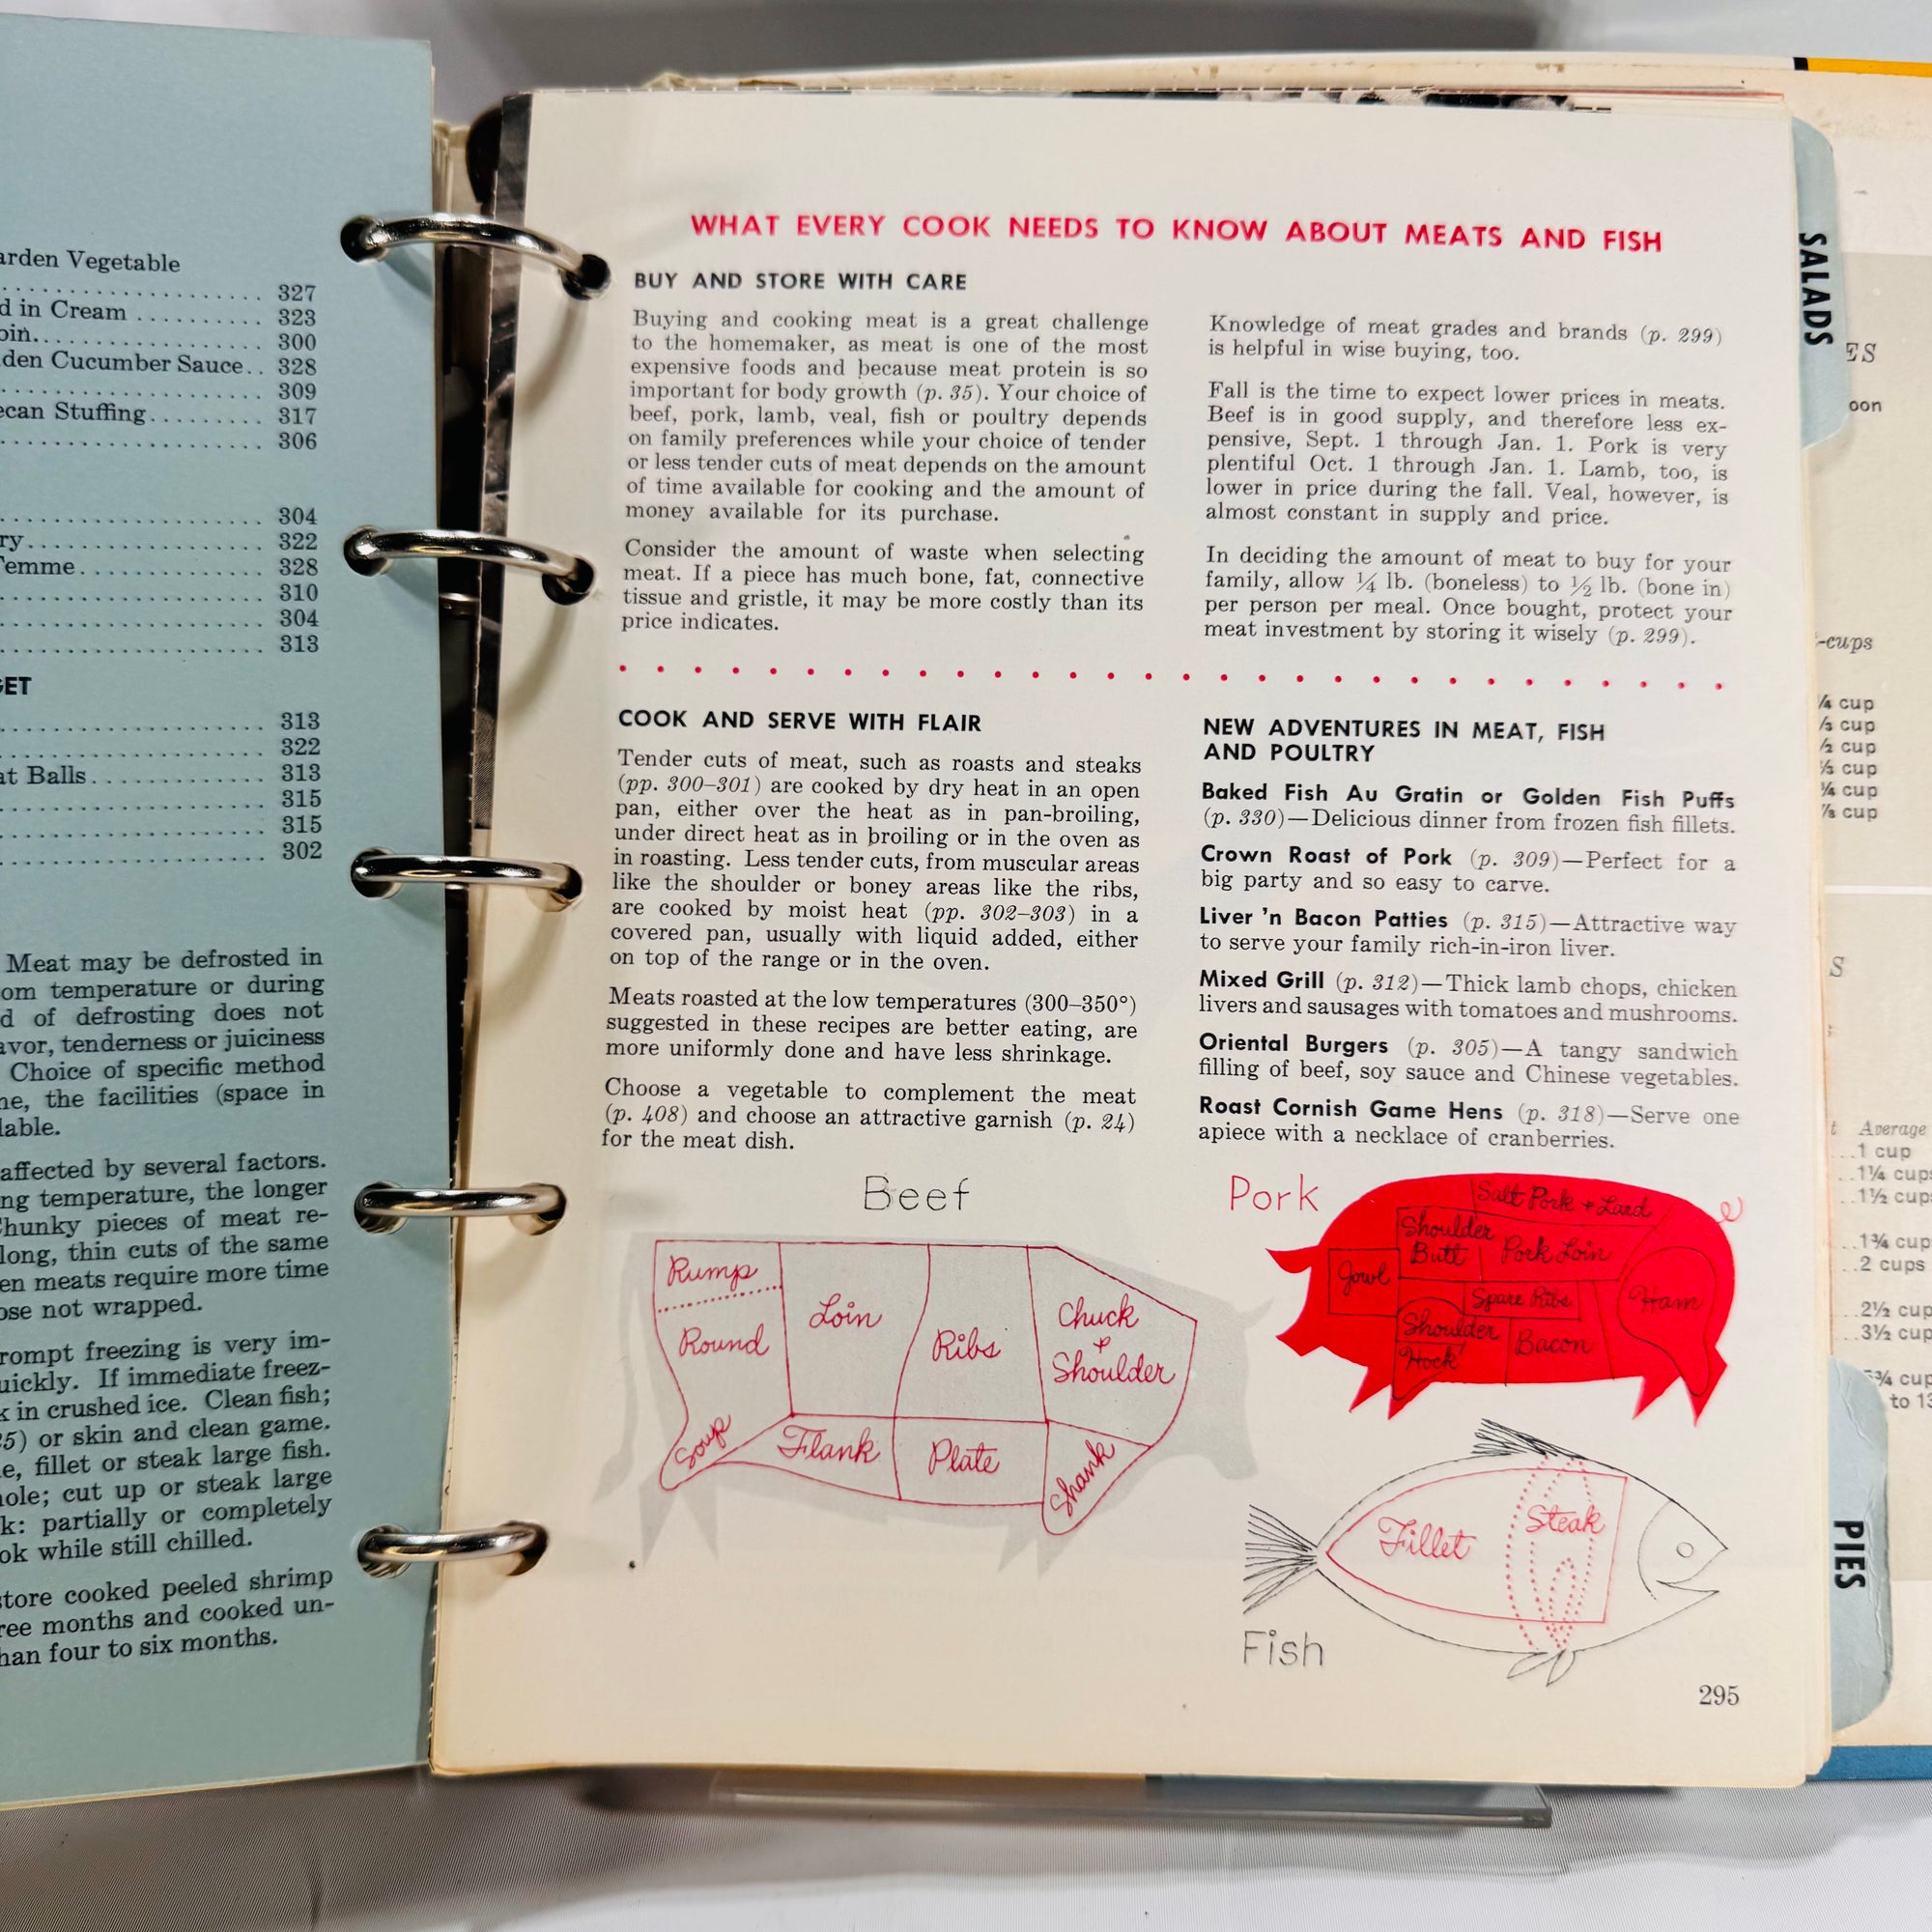 arden Vegetable
327
d in Cream 323
300
den Cucumber Sauce 328
309
ecan Stuffing 317
306
304
322
328
310
304
313
313
322
at Balls 313
315
315
302
Meat may be defrosted in
om temperature or during
d of defrosting does not
avor, tenderness or juiciness
Choice of specific method
the facilities (space in
affected by several factors.
ng temperature, the longer
Chunky pieces of meat re-
long, thin cuts of the same
en meats require more time
ose not wrapped.
rompt freezing is very im-
uickly. If immediate freez-
k in crushed ice. Clean fish;
or skin and clean game.
e, fillet or steak large fish.
hole; cut up or steak large
k: partially or completely
ok while still chilled.
store cooked peeled shrimp
ree months and cooked un-
han four to six months.
WHAT EVERY COOK NEEDS TO KNOW ABOUT MEATS AND FISH
BUY AND STORE WITH CARE
Buying and cooking meat is a great challenge
to the homemaker, as meat is one of the most
expensive foods and because meat protein is so
important for body growth (p. 35). Your choice of
beef, pork, lamb, veal, fish or poultry depends
on family preferences while your choice of tender
or less tender cuts of meat depends on the amount
of time available for cooking and the amount of
money available for its purchase.
Consider the amount of waste when selecting
meat. If a piece has much bone, fat, connective
tissue and gristle, it may be more costly than its
price indicates.
Knowledge of meat grades and brands (p. 299)
is helpful in wise buying, too.
Fall is the time to expect lower prices in meats.
Beef is in good supply, and therefore less ex-
pensive, Sept. 1 through Jan. 1. Pork is very
plentiful Oct. 1 through Jan. 1. Lamb, too, is
lower in price during the fall. Veal, however, is
almost constant in supply and price.
In deciding the amount of meat to buy for your
family, allow ¼ lb. (boneless) to ½ lb. (bone in)
per person per meal. Once bought, protect your
meat investment by storing it wisely (p. 299).
COOK AND SERVE WITH FLAIR
Tender cuts of meat, such as roasts and steaks
(pp. 300–301) are cooked by dry heat in an open
pan, either over the heat as in pan-broiling,
under direct heat as in broiling or in the oven as
in roasting. Less tender cuts, from muscular areas
like the shoulder or boney areas like the ribs,
are cooked by moist heat (pp. 302–303) in a
covered pan, usually with liquid added, either
on top of the range or in the oven.
Meats roasted at the low temperatures (300–350°)
suggested in these recipes are better eating, are
more uniformly done and have less shrinkage.
Choose a vegetable to complement the meat
(p. 408) and choose an attractive garnish (p. 24)
for the meat dish.
NEW ADVENTURES IN MEAT, FISH
AND POULTRY
Baked Fish Au Gratin or Golden Fish Puffs
(p. 330)—Delicious dinner from frozen fish fillets.
Crown Roast of Pork (p. 309)—Perfect for a
big party and so easy to carve.
Liver 'n Bacon Patties (p. 315)—Attractive way
to serve your family rich-in-iron liver.
Mixed Grill (p. 312)—Thick lamb chops, chicken
livers and sausages with tomatoes and mushrooms.
Oriental Burgers (p. 305)—A tangy sandwich
filling of beef, soy sauce and Chinese vegetables.
Roast Cornish Game Hens (p. 318)—Serve one
apiece with a necklace of cranberries.
Beef
Rump
Round
Loin
Ribs
Chuck
+
Shoulder
Soup
Flank
Plate
Shank
Pork
Salt Pork + Lard
Shoulder
Butt
Pork Loin
Jowl
Spare Ribs
Ham
Shoulder
Hock
Bacon
Fillet
Steak
Fish
295
SALADS
PIES
oon
-cups
¼ cup
⅓ cup
½ cup
cup
cup
cup
Average
1 cup
1¼ cups
1½ cups
1¾ cup
2 cups
2½ cup
3½ cup
¾ cup
to 13